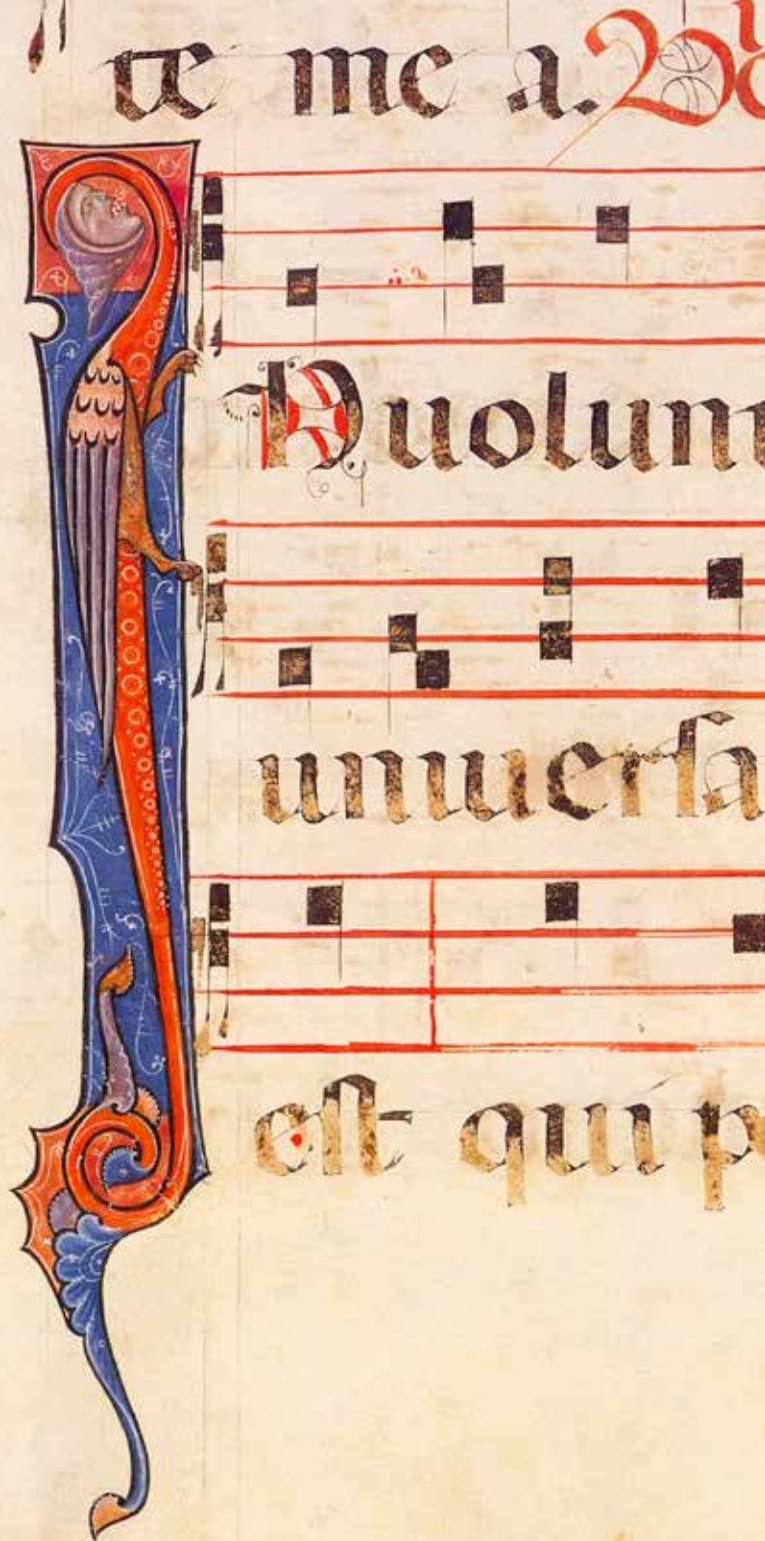 te me a.
IN uolun
uniuerſa
eſt qui p